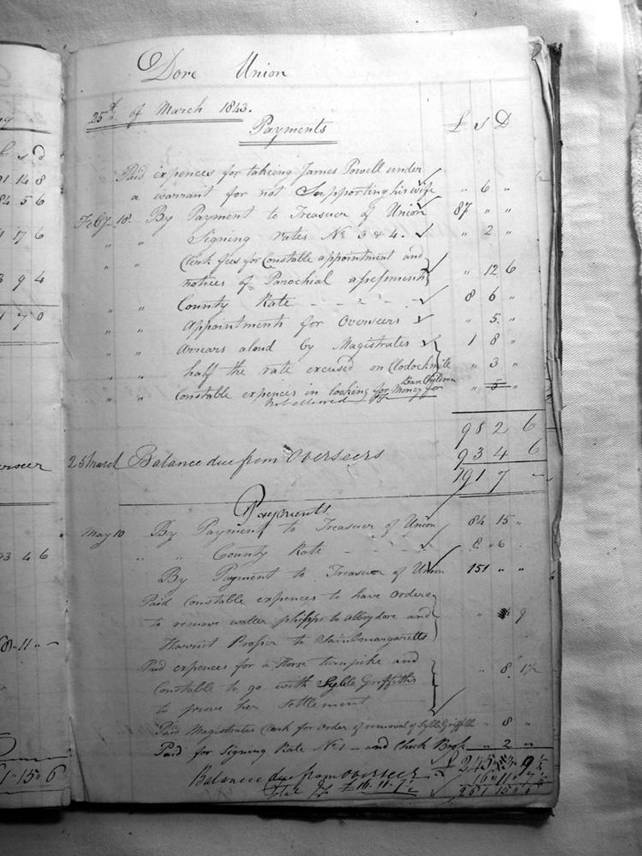 Dore Union
25th of March 1843.
Payments £ s D
Paid expences for takeing James Powell under
a warrant for not Supporting his wife „ 6 „
Feby 18. By Payment to Treasurer of Union 87 „ „
„ „ Signing rates No 3 & 4. „ 2 „
„ „ Clerk fees for Constable appointment and
notices of Parochial assessment „ 12 6
„ „ County Rate 8 6 „
„ „ Appointments for Overseers „ 5 „
„ „ Arrears aloud by Magistrates 1 8 „
„ „ half the rate excused on Clodock „ 3 „
„ „ Constable expences in looking for Money for „ 5 „
not allowed
98 2 6
25 March Balance due from Overseers 93 4 6
191 7 –
Payments
May 10 By Payment to Treasurer of Union 84 15 „
„ „ County Rate 8 6 „
By Payment to Treasurer of Union 151 „ „
Paid Constable expences to have orders
to remove walter phipps to abbydore and „ 9
Harriet Prosser to Saintmargaretts
Paid expences for a Horse turnpike and
Constable to go with Syble Griffiths „ 8 1½
to prove her settlement
Paid Magistrates Clerk for order of removal of Syble Griffiths „ 8 „
Paid for Signing Rate No 1 – and Check Book „ 2 „
£ 245 9½
Balance due from overseer 16 11 7½
Total £ 16. 11. 7½
91 14 8
84 5 6
17 6
3 9 4
1 7 0
93 4 6
11 „ –
1 „ 15 „ 6